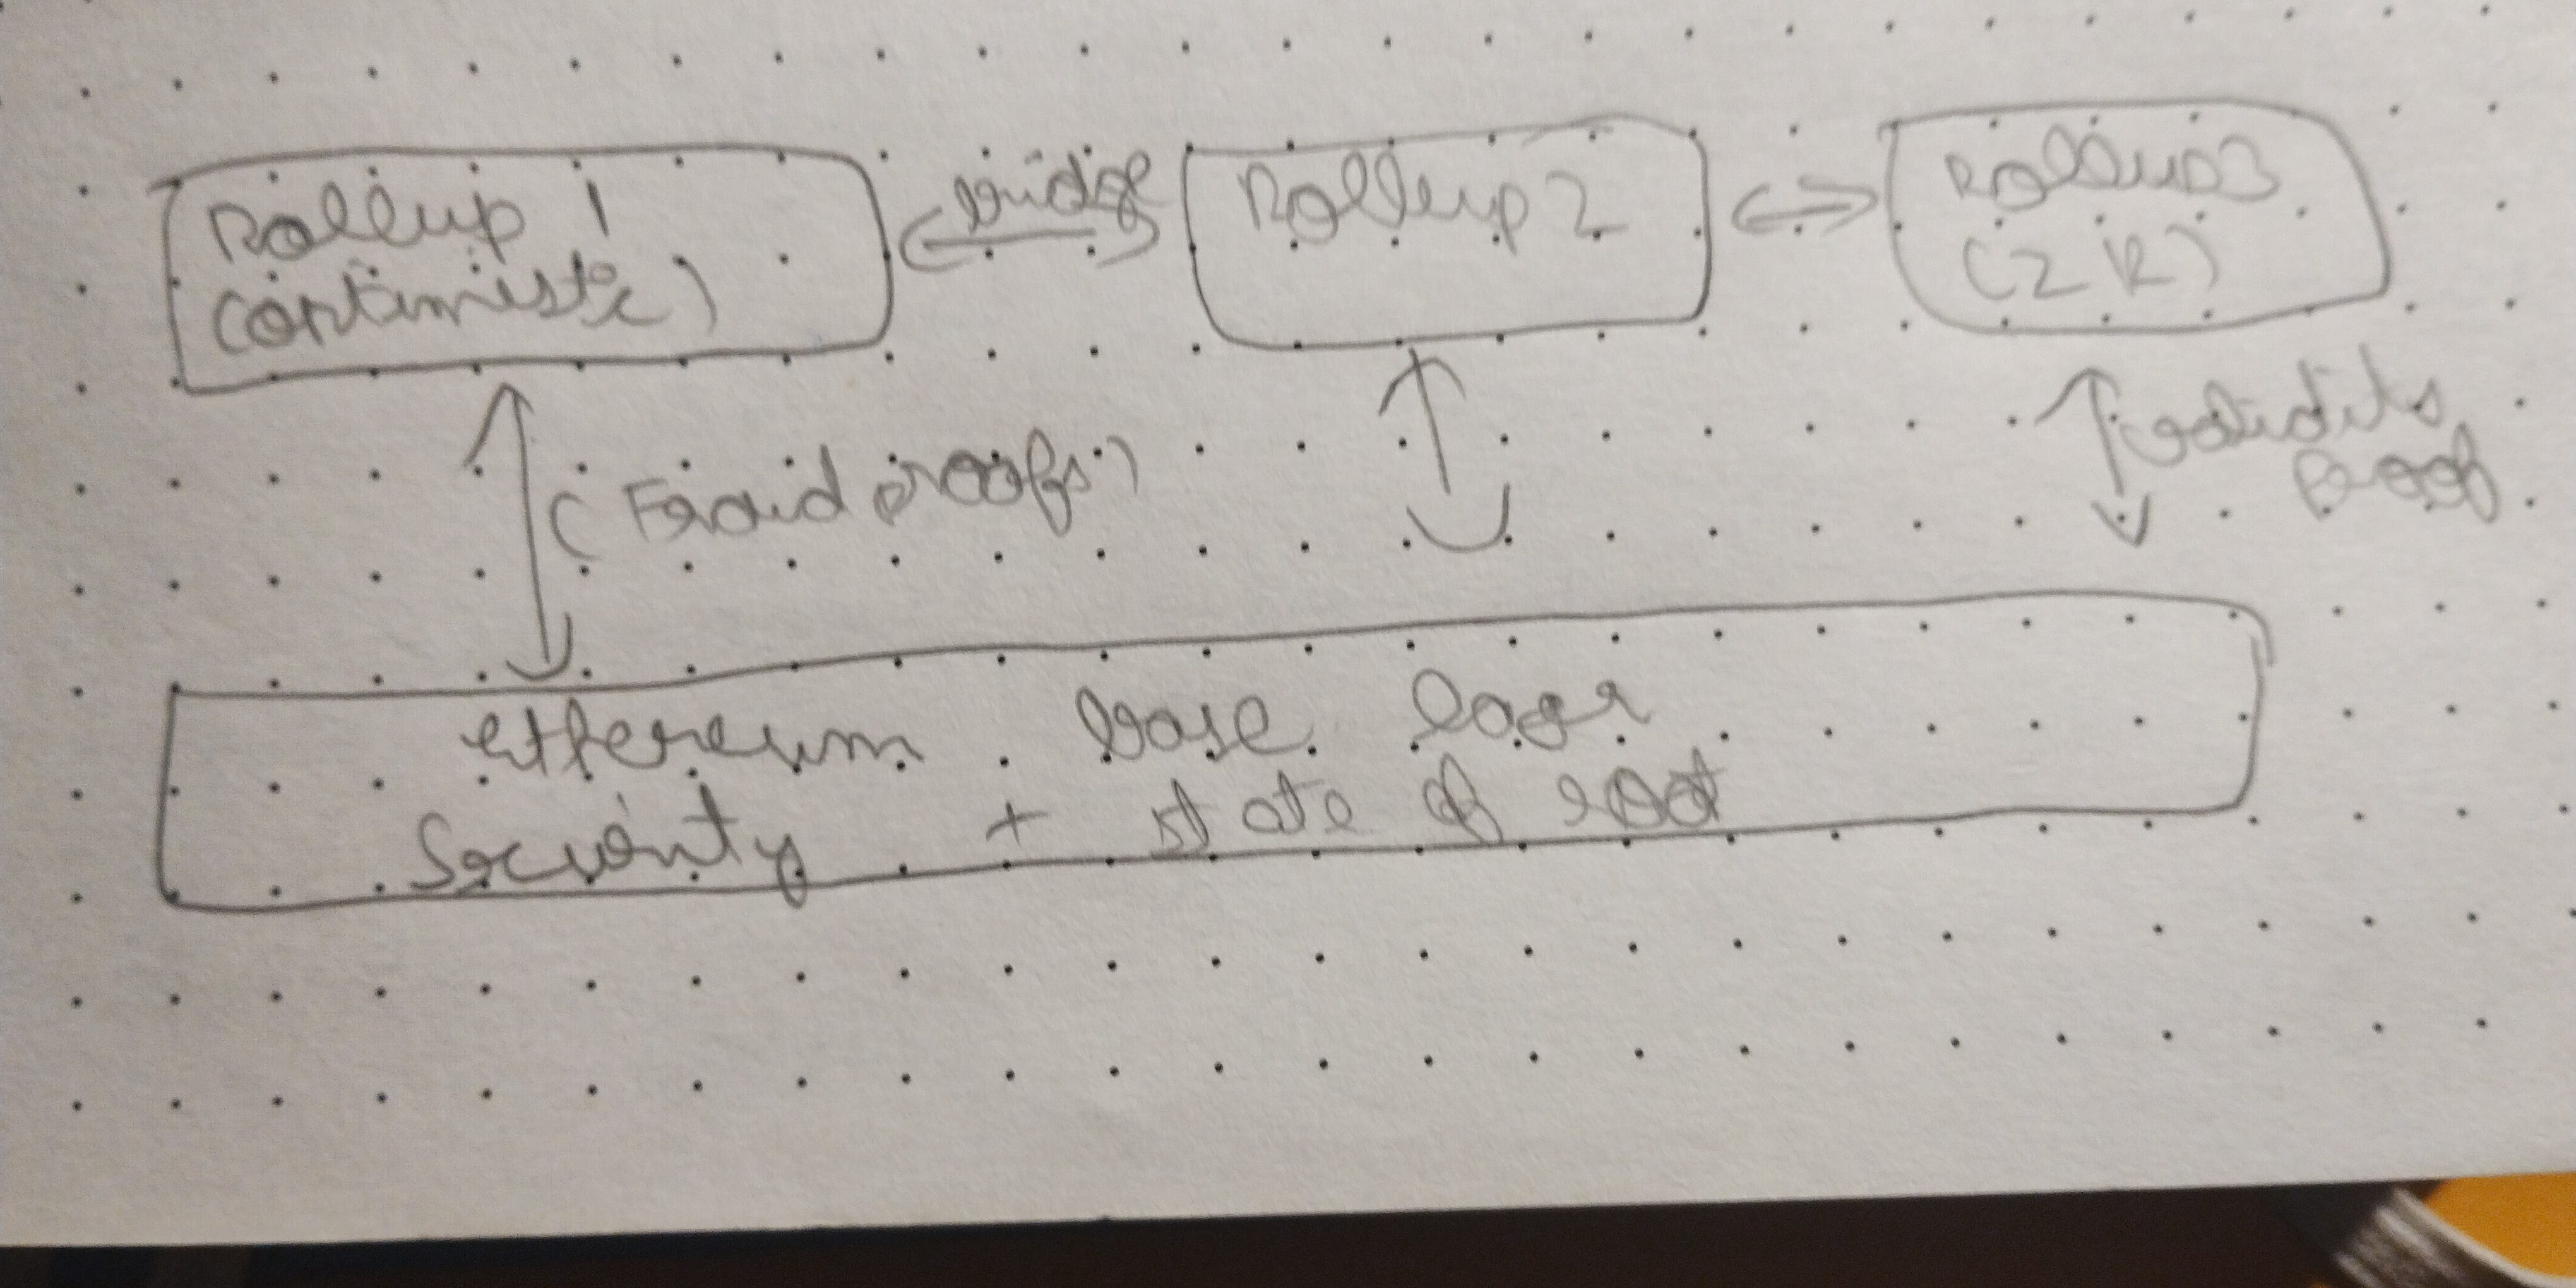 Rollup 1
(optimistic)
bridge
Rollup 2
Rollup 3
(ZK)
(Fraud proofs)
validity
Proof
ethereum base layer
Security + state of root